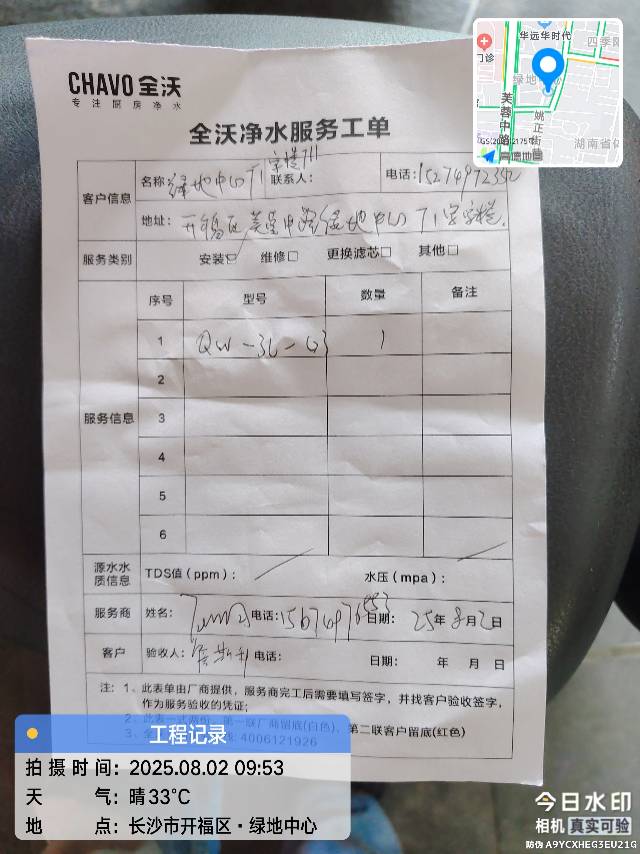 CHAVO 全沃
专注厨房净水
全沃净水服务工单
客户信息
名称: 绿地中心T1 联系人: 电话:
地址: 开福区芙蓉中路绿地中心T1
服务类别 安装☑ 维修□ 更换滤芯□ 其他□
序号 型号 数量 备注
服务信息
1 QW-3L-G3 1
2
3
4
5
6
源水水质信息 TDS值(ppm): 水压(mpa):
服务商 姓名: 电话: 日期: 25年8月2日
客户 验收人: 电话: 日期: 年 月 日
注: 1、此表单由厂商提供,服务商完工后需要填写签字,并找客户验收签字,
作为服务验收的凭证;
2、此表一式两份,第一联厂商留底(白色)、第二联客户留底(红色)
3、全 4006121926
华远华时代
四季
门诊
绿地中
芙蓉中路
姚正街
湖南省体
高德地图
工程记录
拍摄时间: 2025.08.02 09:53
天 气: 晴33°C
地 点: 长沙市开福区·绿地中心
今日水印
相机 真实可验
防伪 A9YCXHEG3EU21G